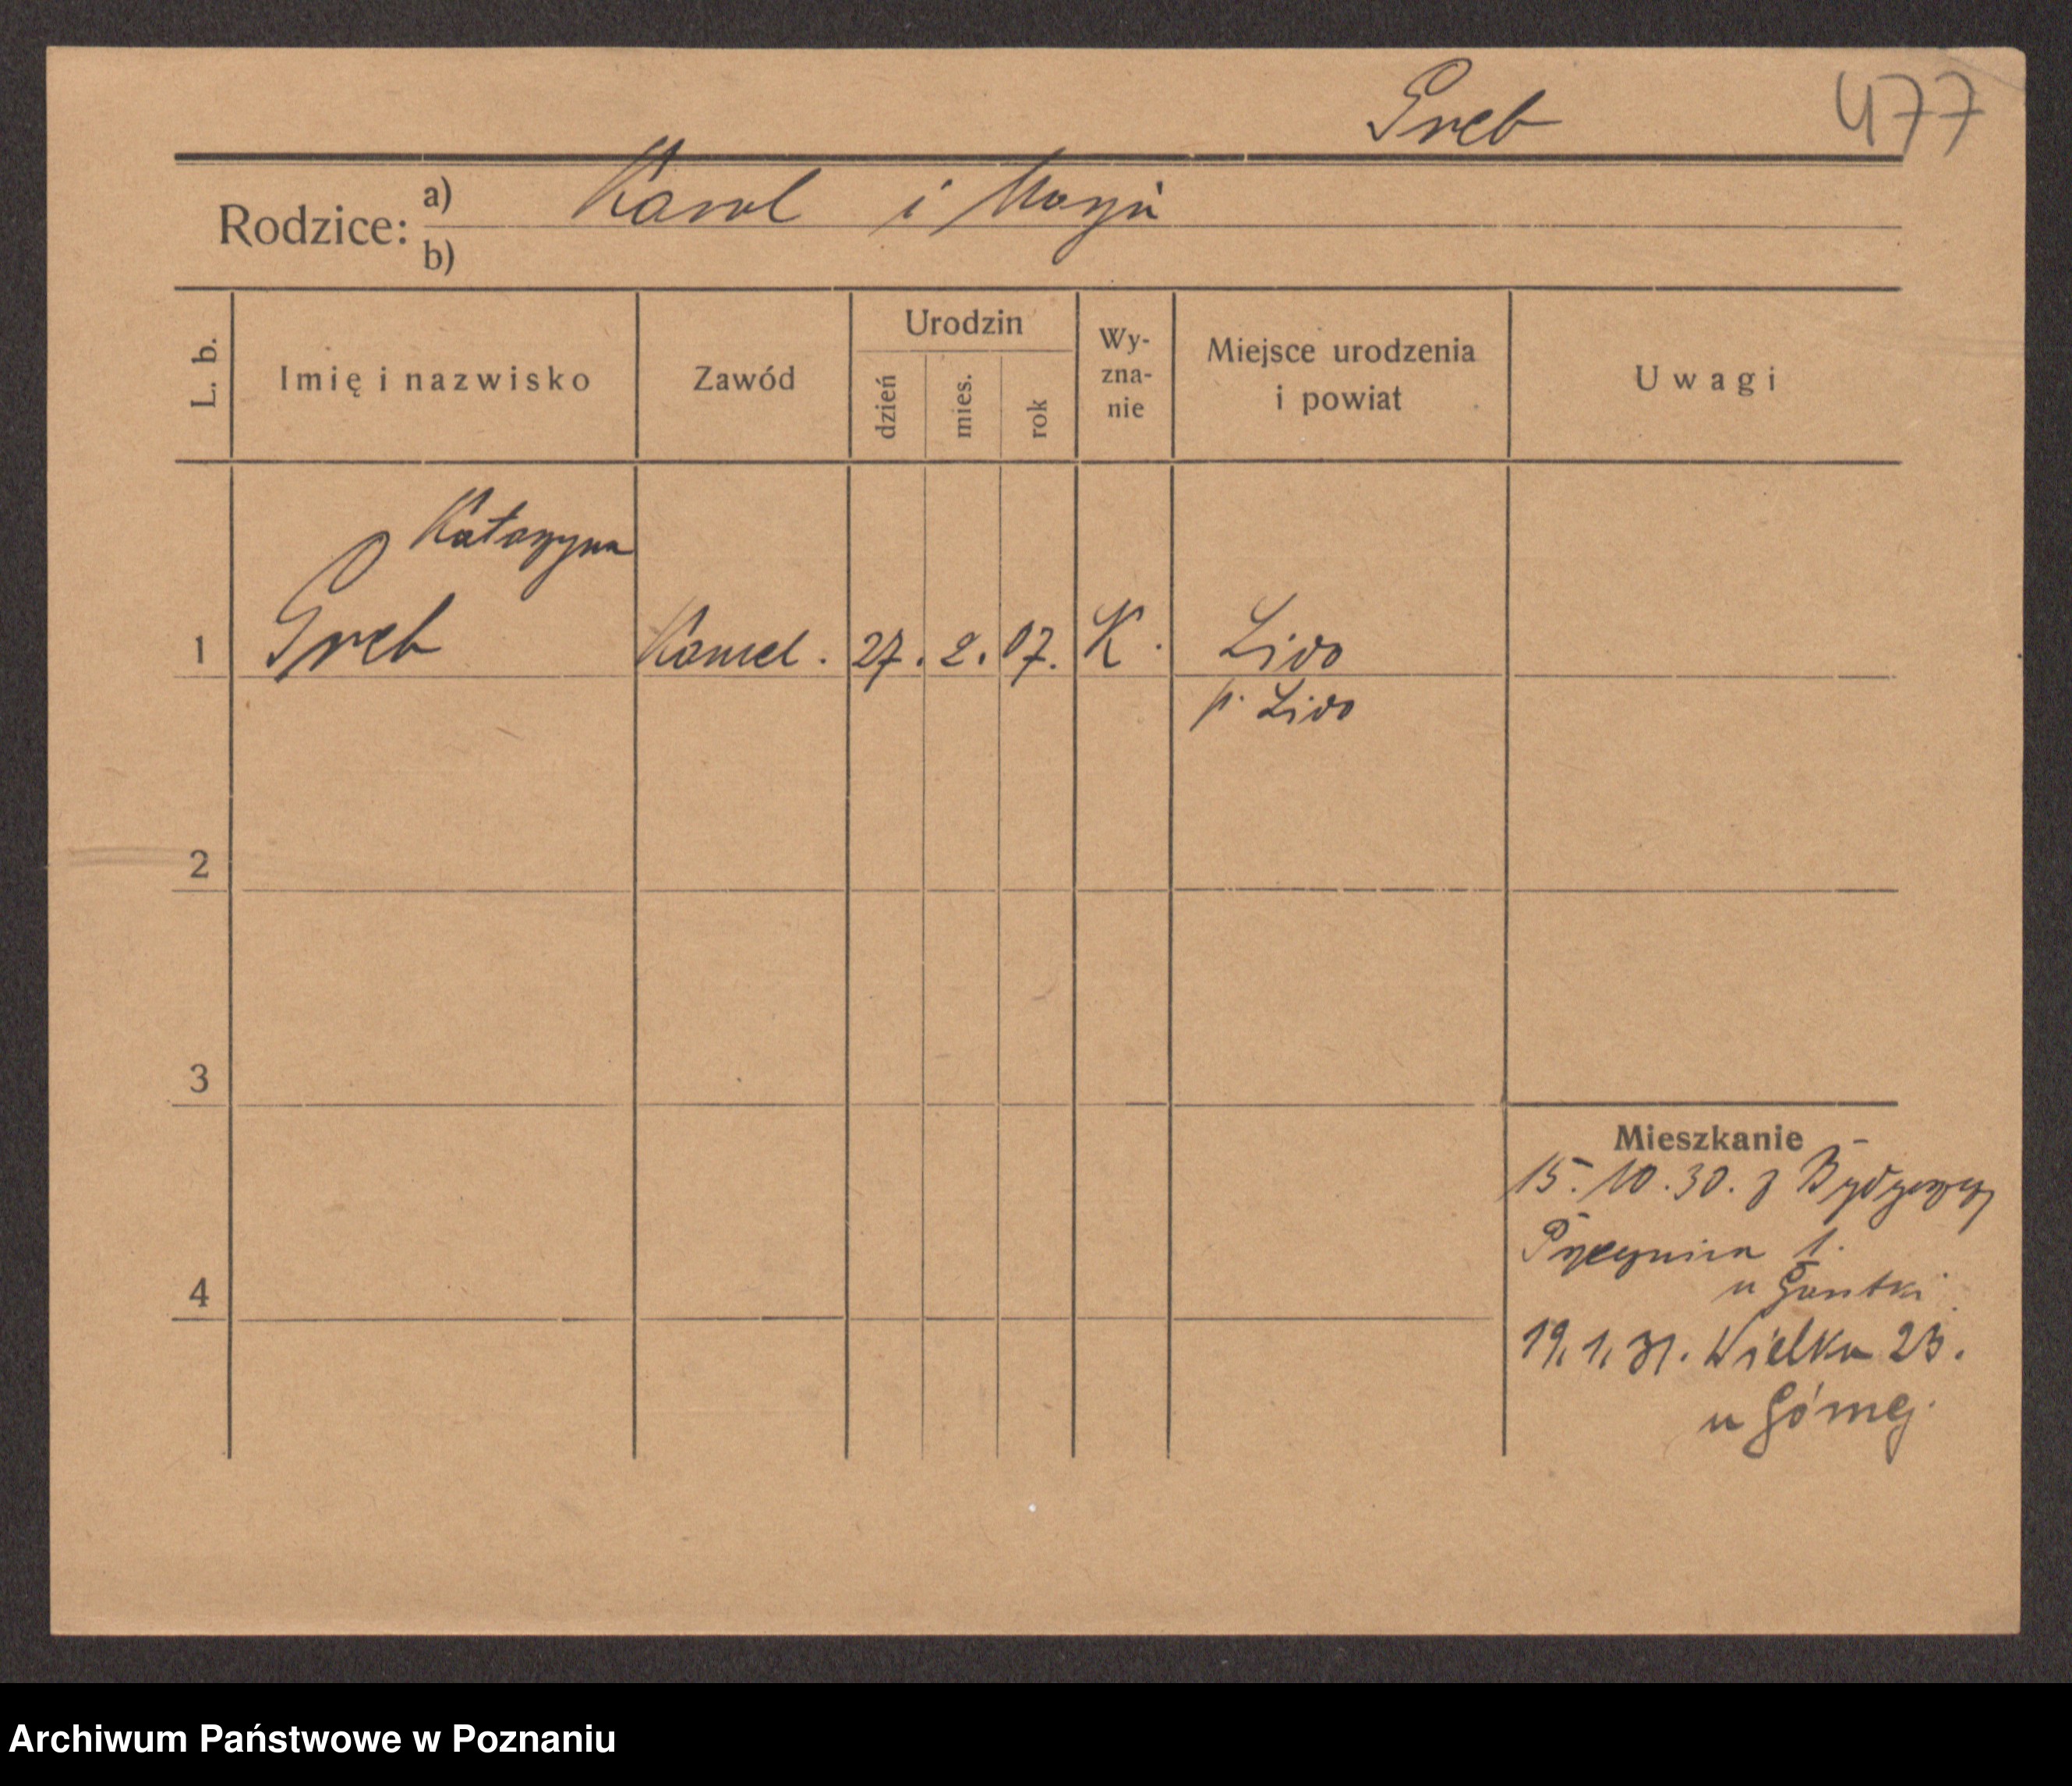 Greb 477
Rodzice: a) Karol i Marja
b)
L. b. Imię i nazwisko Zawód Urodzin dzień mies. rok Wy-zna-nie Miejsce urodzenia i powiat Uwagi
Katarzyna
1 Greb 27. 2. 07. K. Lido
p. Lido
2
3
Mieszkanie -
15.10.30. z Bydgoszczy
1.
4
u
19.1.31. Wielka 23.
u Górnej.
Archiwum Państwowe w Poznaniu